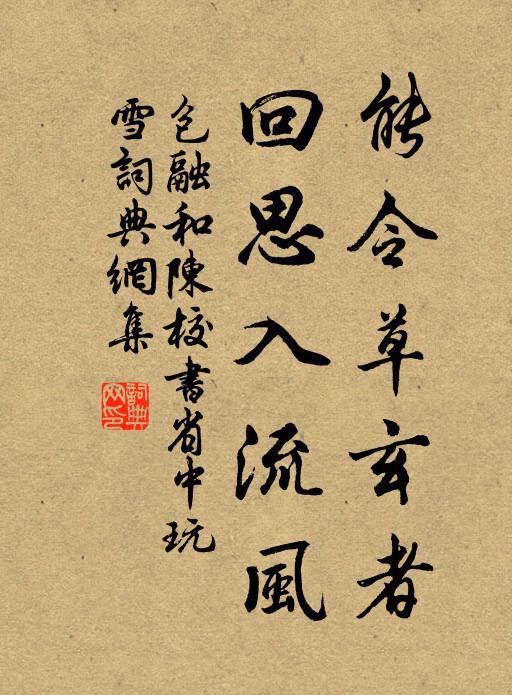 能令草玄者
回思入流風
包融和陳校書省中玩
雪詞典網集
詞典網印